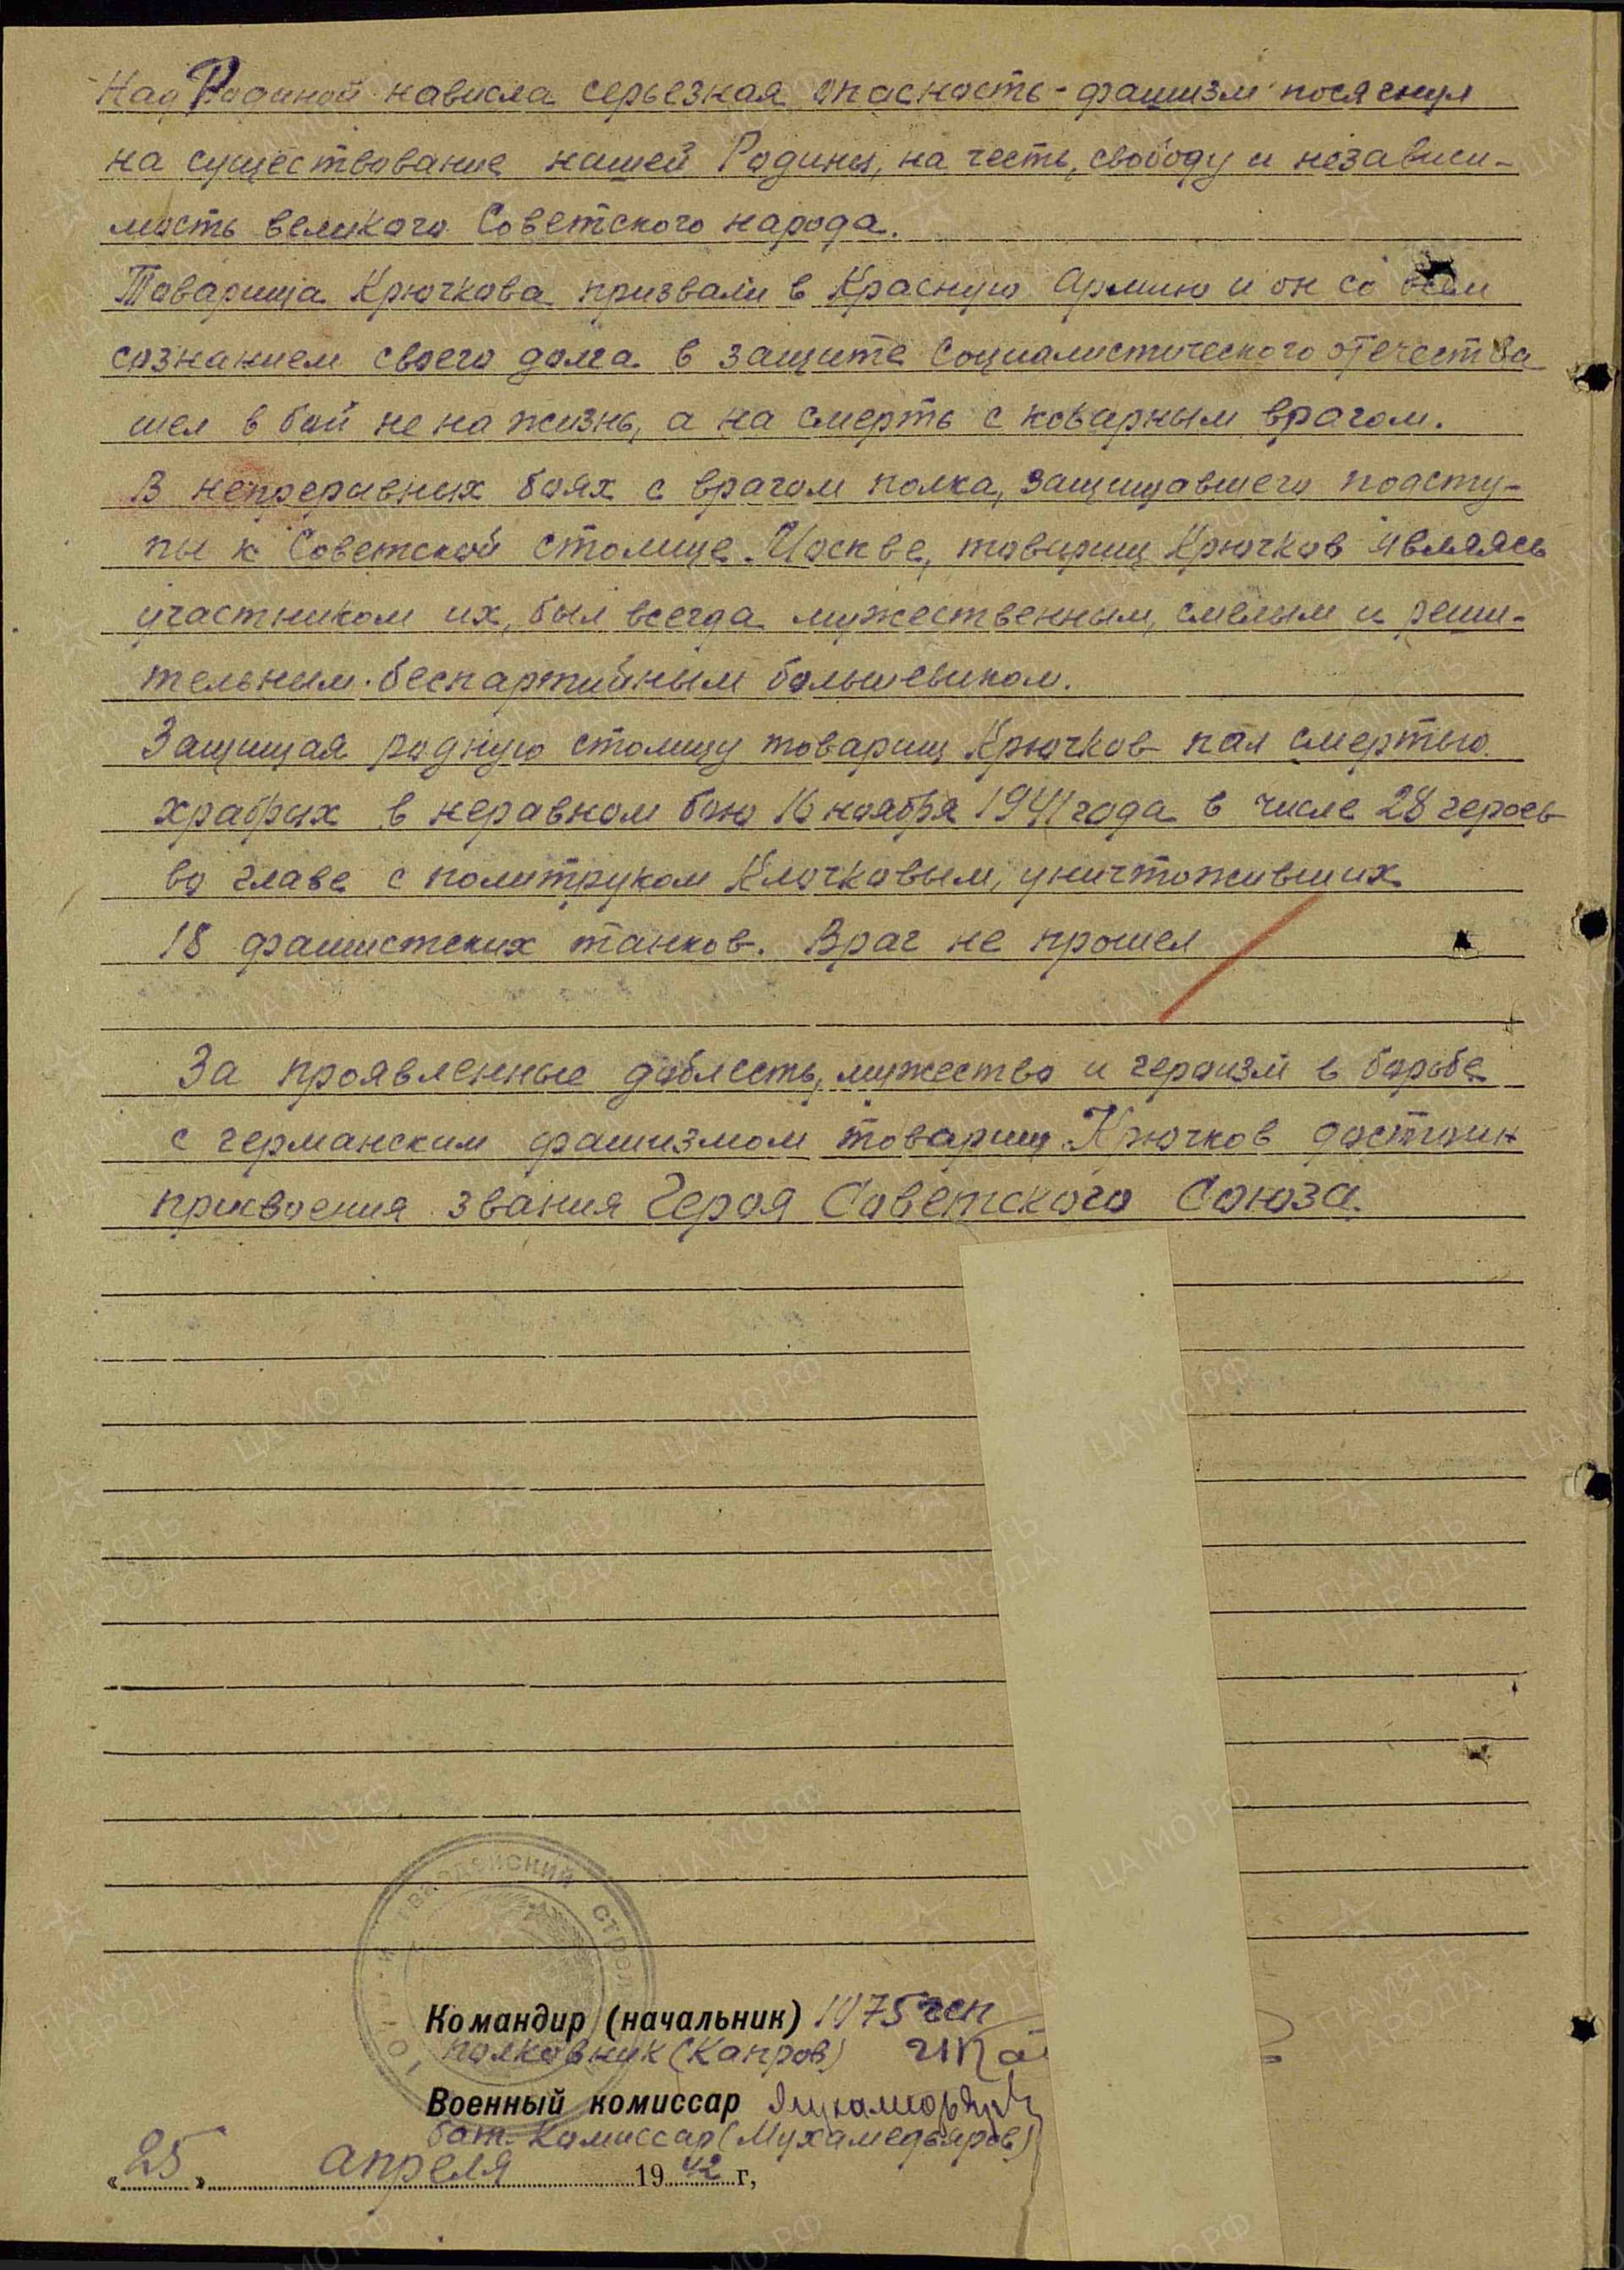 Над Родиной нависла серьезная опасность - фашизм посягнул
на существование нашей Родины, на честь, свободу и независи-
мость великого Советского народа.
Товарища Крючкова призвали в Красную Армию и он со всем
сознанием своего долга в защите социалистического отечества
шел в бой не на жизнь, а на смерть с коварным врагом.
В непрерывных боях с врагом полка, защищавшего подсту-
пы к Советской столице - Москве, товарищ Крючков являясь
участником их, был всегда мужественным, смелым и реши-
тельным беспартийным большевиком.
Защищая родную столицу товарищ Крючков пал смертью
храбрых в неравном бою 16 ноября 1941 года в числе 28 героев
во главе с политруком Клочковым, уничтоживших
18 фашистских танков. Враг не прошел
За проявленные доблесть, мужество и героизм в борьбе
с германским фашизмом товарищ Крючков достоин
присвоения звания Героя Советского Союза.
ГВАРДЕЙСКИЙ
Командир (начальник) 1075 гсп
полковник (Капров)
Военный комиссар
бат. комиссар (Мухамедьяров)
«25» апреля 1942 г,
ЦАМО РФ
ПАМЯТЬ НАРОДА